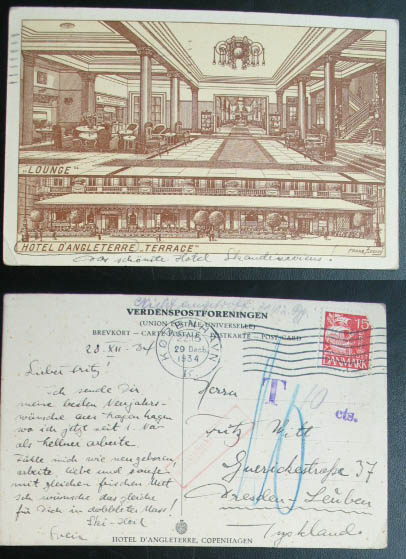 „LOUNGE"
HOTEL D'ANGLETERRE „TERRACE"
Das schönste Hotel Skandinaviens.
VERDENSPOSTFORENINGEN
(UNION POSTALE UNIVERSELLE)
BREVKORT - CARTE POSTALE - POSTKARTE - POST-CARD
KØBENHAVN
29 Decb.
1934
15
DANMARK
28 XII - 34
Lieber Fritz!
Ich sende Dir
meine besten Neujahrs-
wünsche aus Kopenhagen
wo ich jetzt seit 1.
als Kellner arbeite
Fühle mich wie neugeboren
arbeite liebe und saufe
mit gleichen frischen Mut
Ich wünsche das gleiche
für Dich in dobbelter Mass!
Ski-Heil
T
10
cts.
Herrn
Fritz Witt
Guerickestraße 37
Dresden-Leuben
Tyskland.
HOTEL D'ANGLETERRE, COPENHAGEN